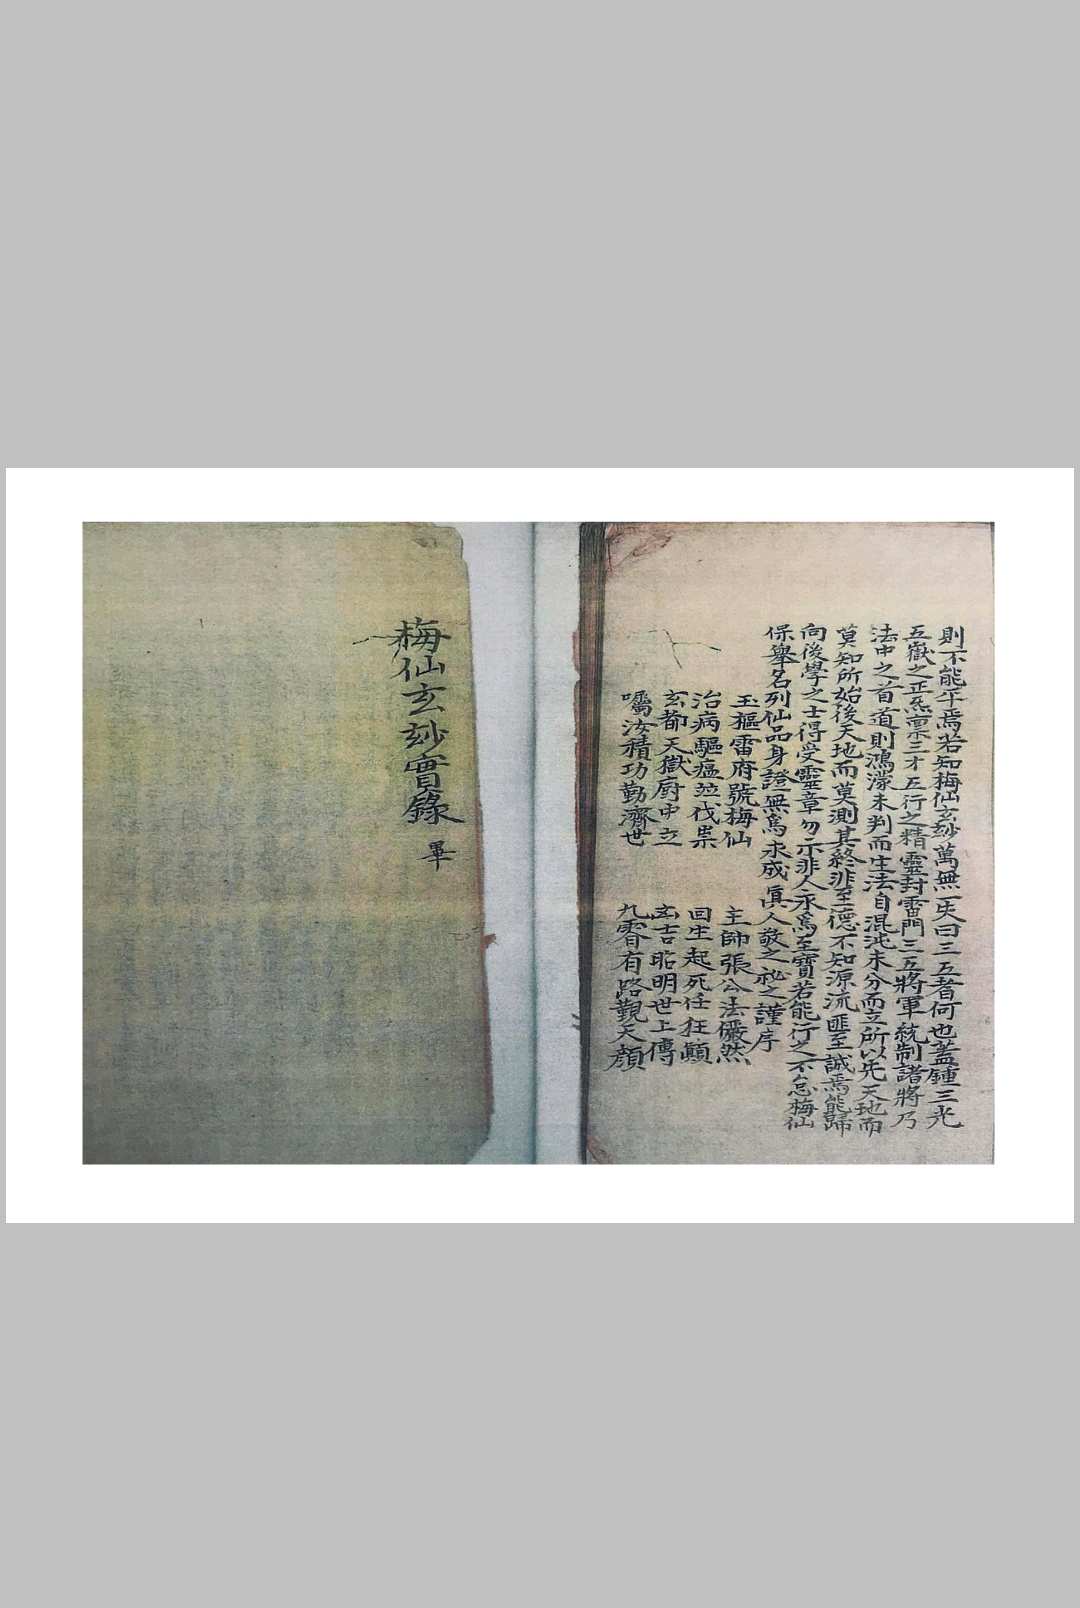 則不能平焉若知梅仙玄玅萬無一失曰三五者何也蓋鍾三光
五嶽之正炁禀三才五行之精靈封雷門三五將軍統制諸將乃
法中之首道則鴻濛未判而生法自混沌未分而立所以先天地而
莫知所始後天地而莫測其終非至德不知源流匪至誠焉能歸
向後學之士得受靈章勿示非人永爲至寶若能行之不怠梅仙
保舉名列仙品身證無爲永成眞人敬之祕之謹序
玉樞雷府號梅仙 主帥張公法儼然
治病驅瘟並伐祟 回生起死任狂顛
玄都天獄廚中立 玄吉昭明世上傳
囑汝積功勤濟世 九霄有路覲天顏
梅仙玄玅實錄 畢